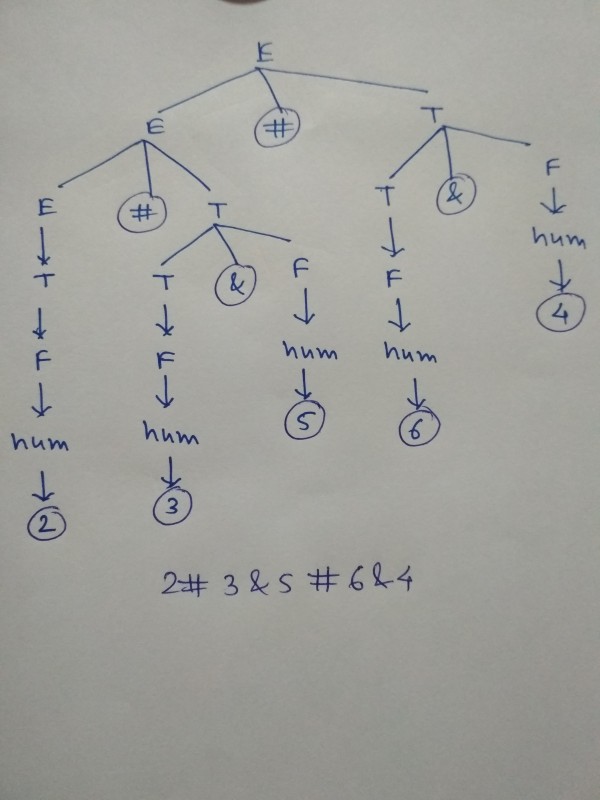 E
E # T
E # T T & F
T T & F F num
F F num num 4
num num 5 6
2 3
2# 3 & 5 # 6 & 4